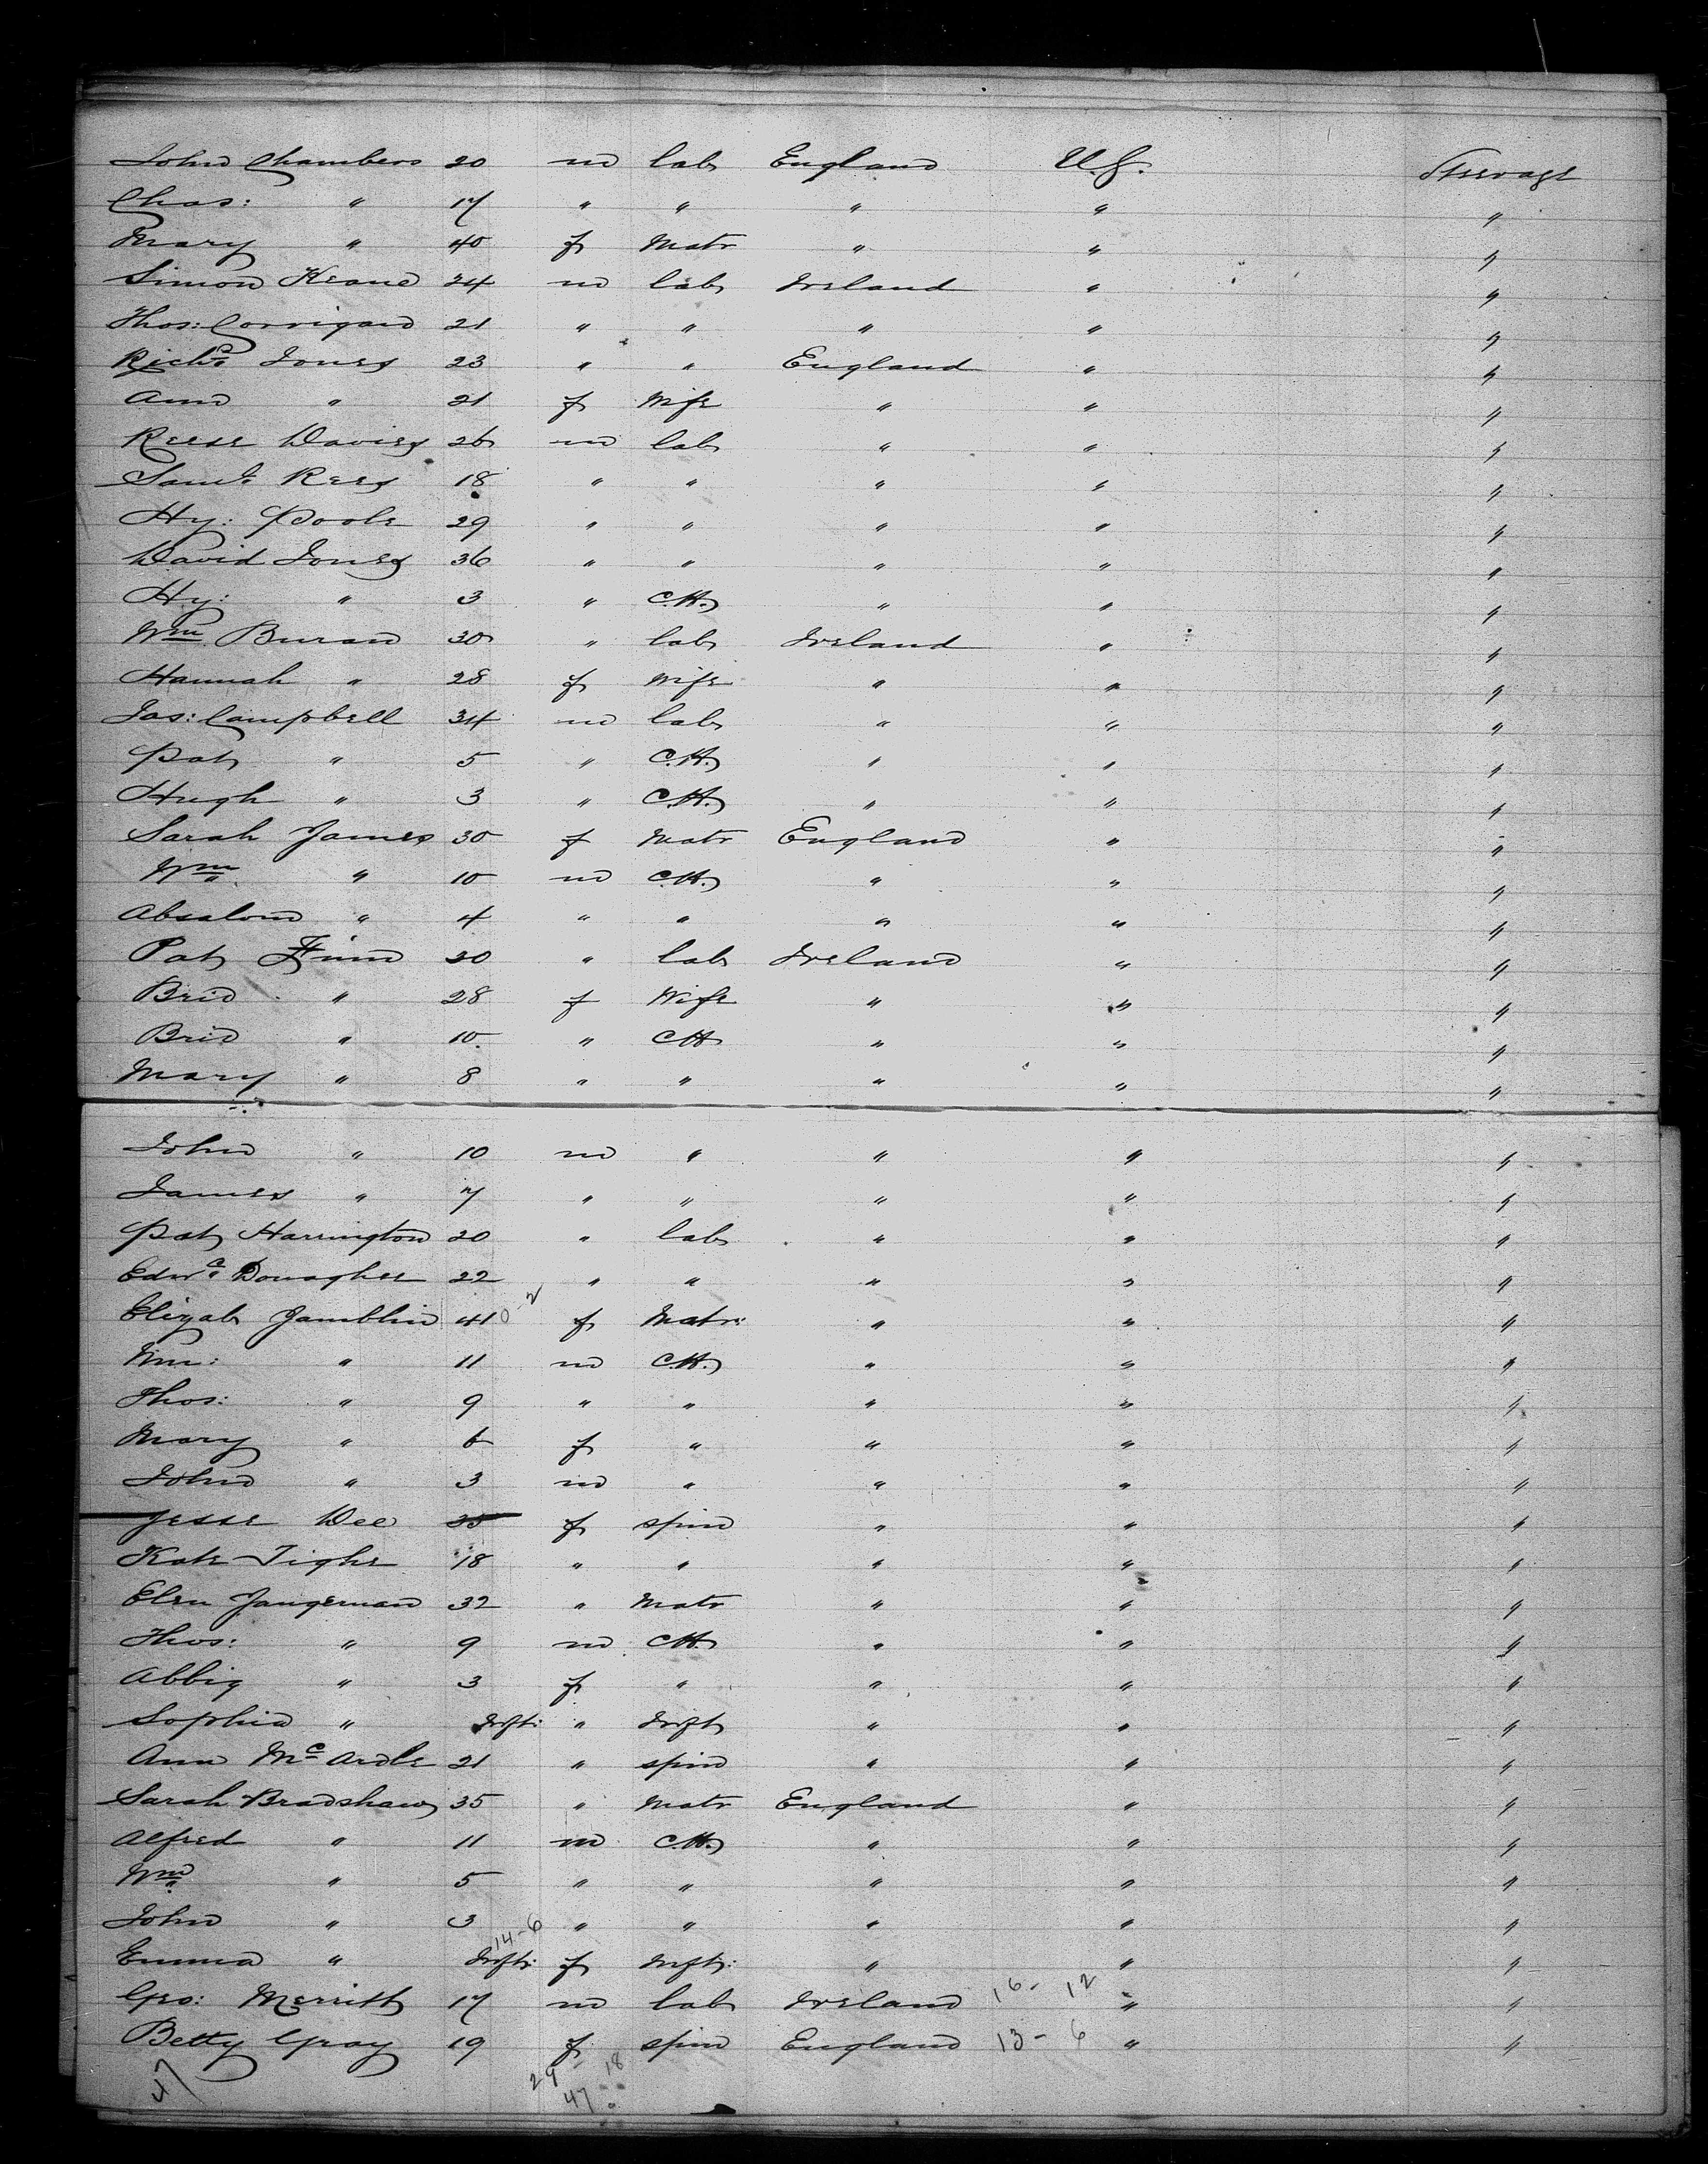 John Chambers 20 m lab England U.S. Steerage
Chas: " 17 " " " " "
Mary " 40 f Matr " " "
Simon Keane 24 m lab Ireland " "
Thos: Corrigan 21 " " " " "
Richd Jones 23 " " England " "
Ann " 21 f Wife " " "
Reese Davies 26 m lab " " "
Saml Rees 18 " " " " "
Hy: Poole 29 " " " " "
David Jones 36 " " " " "
Hy: " 3 " Ch. " " "
Wm Buran 30 " lab Ireland " "
Hannah " 28 f Wife " " "
Jas: Campbell 34 m lab " " "
Pat " 5 " Ch. " " "
Hugh " 3 " Ch. " " "
Sarah James 30 f Matr England " "
Wm " 10 m Ch. " " "
Absalom " 4 " " " " "
Pat Finn 30 " lab Ireland " "
Brid " 28 f Wife " " "
Brid " 10 " Ch " " "
Mary " 8 " " " " "
John " 10 m " " " "
James " 7 " " " " "
Pat Harrington 20 " lab " " "
Edwd Donaghee 22 " " " " "
Elizab Jamblin 41 0-2 f Matr: " " "
Wm: " 11 m Ch. " " "
Thos: " 9 " " " " "
Mary " 6 f " " " "
John " 3 m " " " "
Jesse Dee 35 f spin " " "
Kate Tighe 18 " " " " "
Elen Jangerman 32 " Matr " " "
Thos: " 9 m Ch. " " "
Abbig " 3 f " " " "
Sophia " Inft: " Inft " " "
Ann Mc Ardle 21 " spin " " "
Sarah Bradshaw 35 " Matr England " "
Alfred " 11 m Ch. " " "
Wm " 5 " " " " "
John " 3 " " " " "
14-6
Emma " Inft: f Inft: " " "
Geo: Merritt 17 m lab Ireland 16- 12 " "
Betty Gray 19 f spin England 13- 6 " "
47 29 18
47